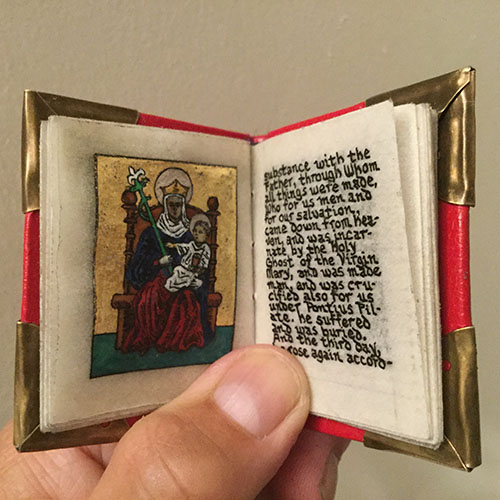 substance with the
Father, through Whom
all things were made,
Who for us men and
for our salvation,
came down from hea-
ven, and was incar-
nate by the Holy
Ghost of the Virgin
Mary, and was made
man, and was cru-
cified also for us
under Pontius Pil-
ate. he suffered
and was buried.
And the third day,
rose again accord-